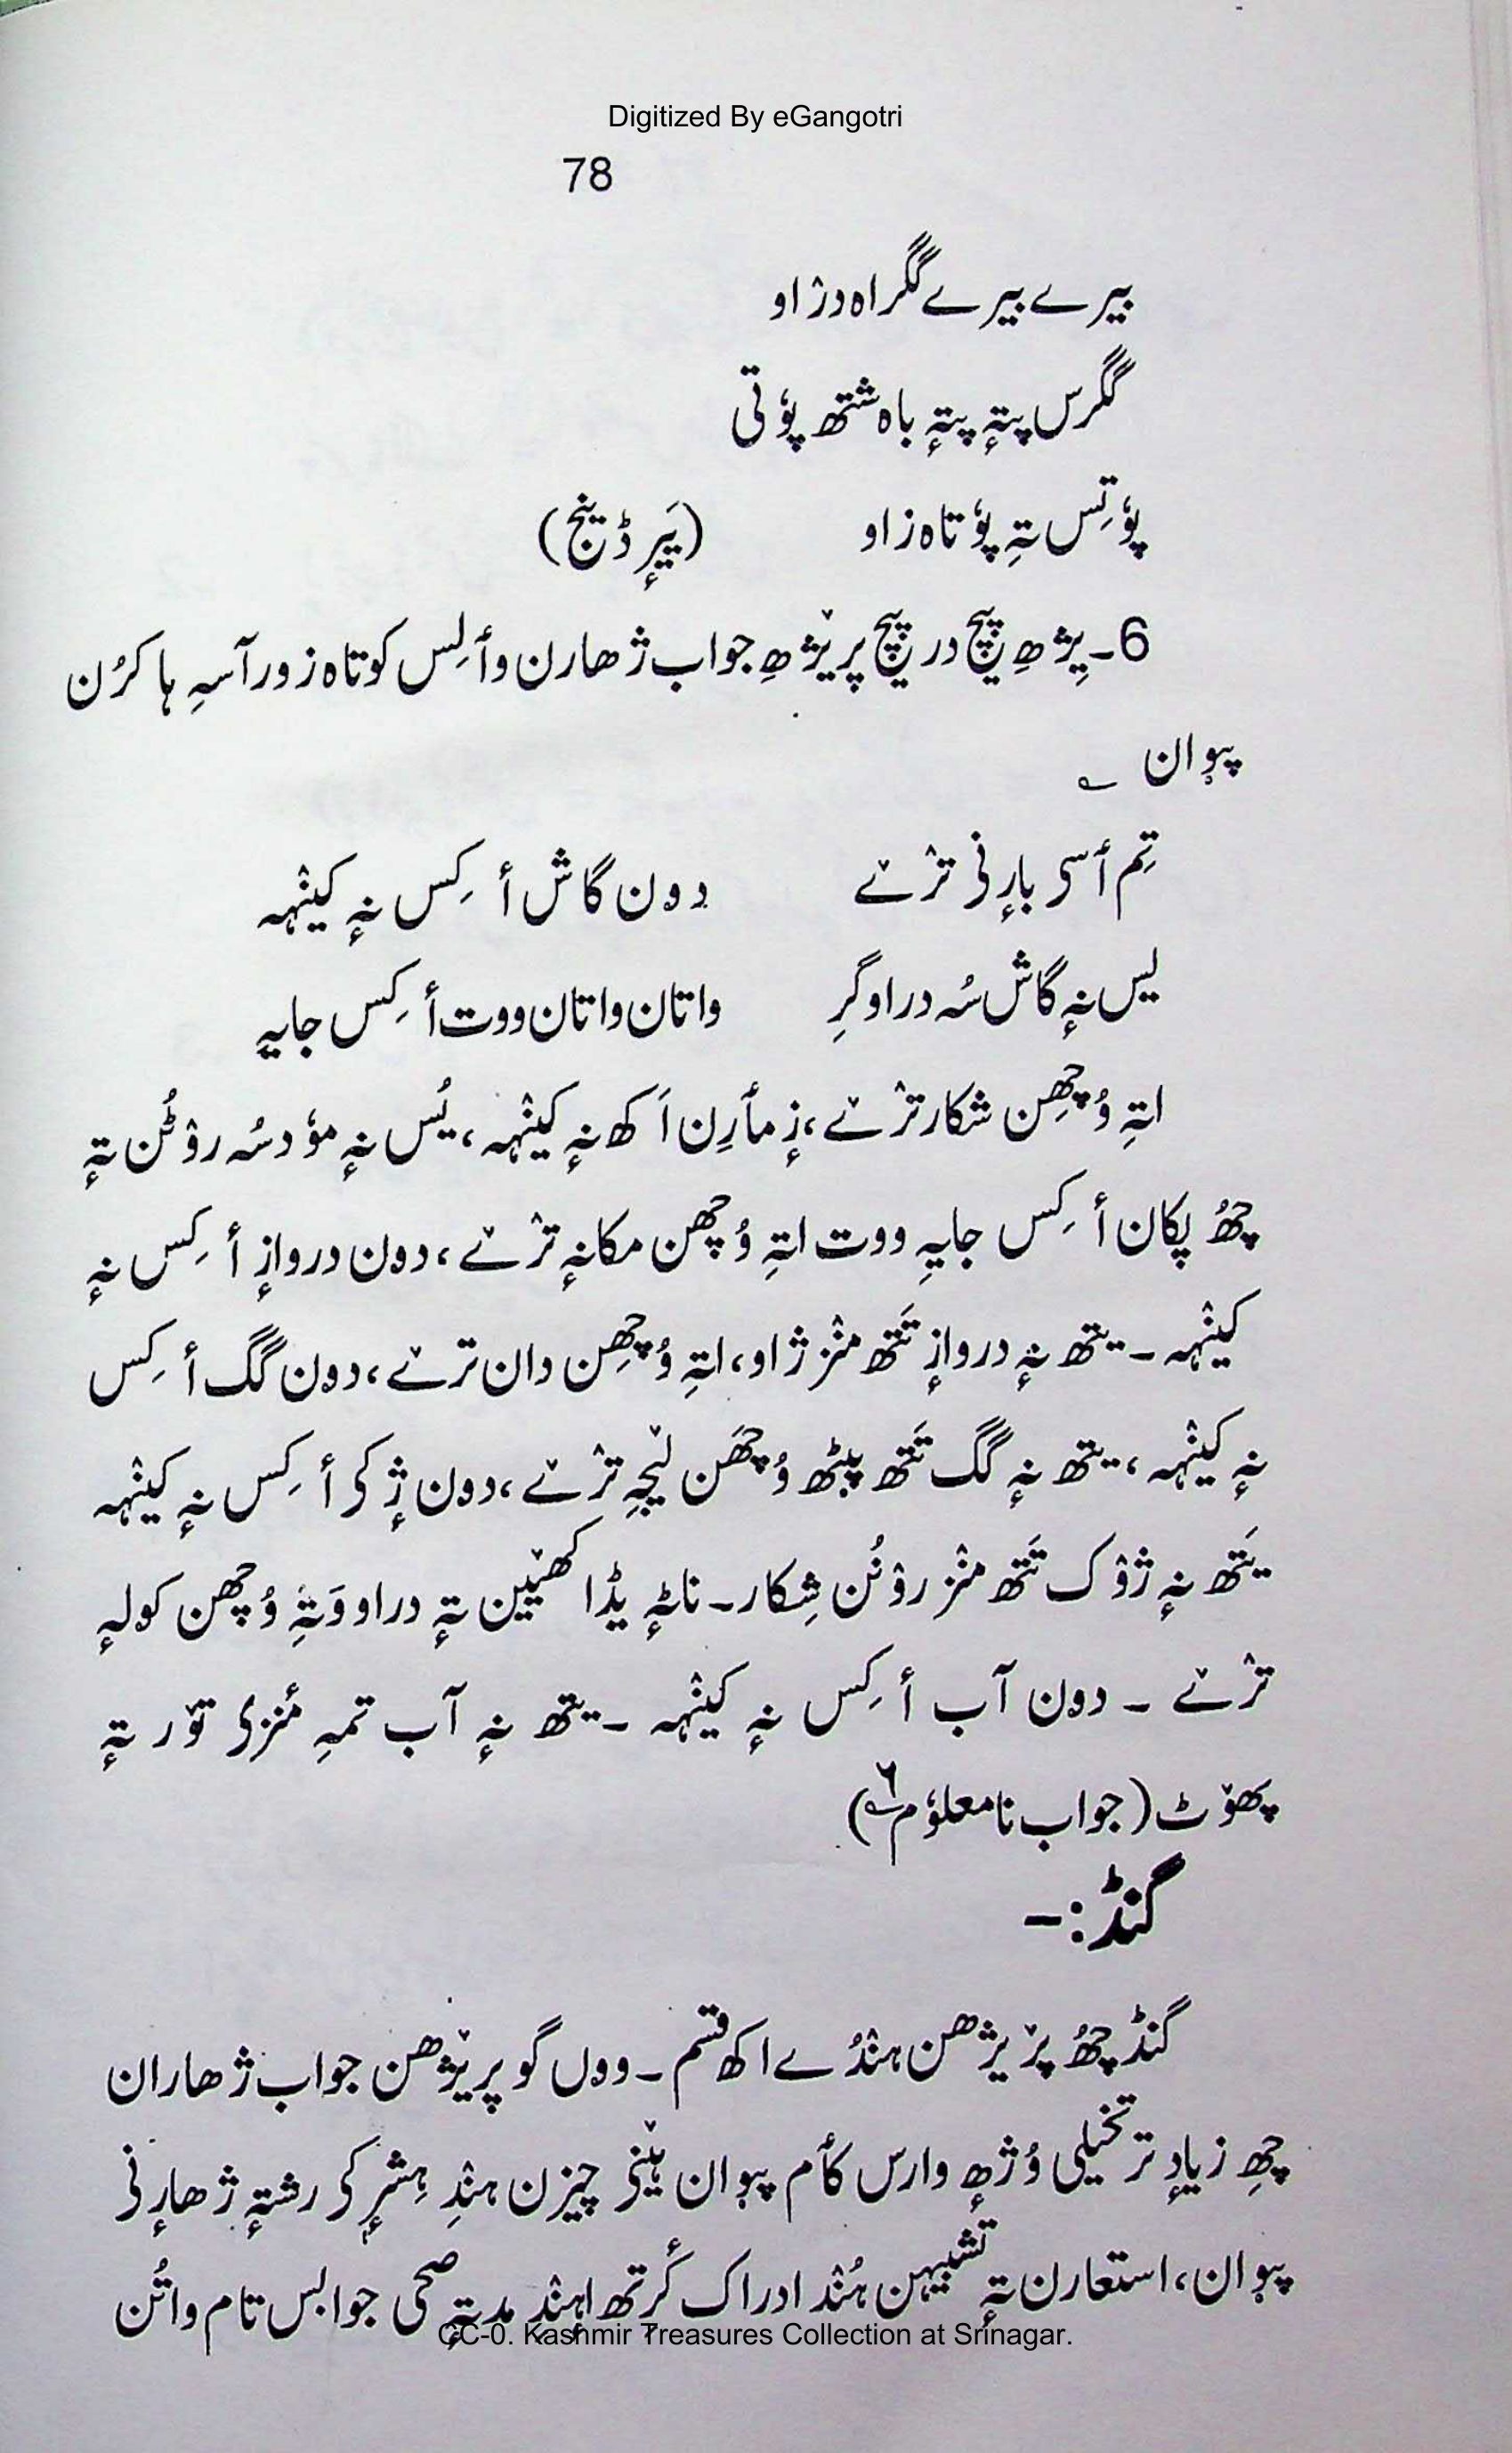 Digitized By eGangotri
78
بیرے بیرے گگراہ دژاو
گگرس پتہٕ پتہٕ باہ شتھ پوٗتی
پوٗتِس تہِ پوٗتاہ زاو (یَیرِٕ ڈینٛج)
6۔ پرٛژھِ پیچ در پیچ پرٛیژھِ جواب ژھارن وٲلِس کوتاہ زور آسہِ ہا کرُن
پیوان ؎
تِم ٲسی بارٕنی ترٛےٚ دون گاش أکِس نہٕ کینٛہہ
یس نہٕ گاش سُہ دراو گرِ واتان واتان ووت أکِس جایہِ
اتہِ وُچھِن شکار ترٛےٚ، زٕ مأرِن اَکھ نہٕ کینٛہہ، یُس نہٕ موٗد سُہ روٚٹُن تہٕ
چھُ پکان أکِس جایہِ ووت اتہِ وُچھن مکانہٕ ترٛےٚ، دون دروازٕ أکِس نہٕ
کینٛہہ۔ یتھ نہٕ دروازٕ تَتھ منٛز ژاو، اتہِ وُچھِن دان ترٛےٚ، دون گگ أکِس
نہٕ کینٛہہ، یتھ نہٕ گگ تَتھ پیٹھ وُچھَن لیٚجہِ ترٛےٚ، دون ژٕکی أکِس نہٕ کینٛہہ
یَتھ نہٕ ژوٚک تَتھ منٛز روٚنُن شِکار۔ ناٹہٕ یڈا کھیٚین تہٕ دراو وَتہِ وُچھن کولہٕ
ترٛےٚ ۔ دون آب أکِس نہٕ کینٛہہ ۔ یتھ نہٕ آب تمہِ مٔنزی توٚر تہٕ
پھوٚٹ (جواب نامعلوٗم ؎۶)
گنڈ:۔
گنڈ چھُ پرٛیژھن ہنٛدُے اکھ قسم ۔ ووں گو پرٛیژھن جواب ژھاران
چھِ زیادٕ تر تخیلی وُژھٕ وارس کأم پیوان ہیٚنی چیزن ہنٛدِ ہِشرٕکی رشتہٕ ژھارٕنی
پیوان، استعارن تہٕ تشبیہن ہُنٛد ادراک کٔرتھ اہنٛدِ مدتہٕ صحی جوابس تام واتُن
CC-0. Kashmir Treasures Collection at Srinagar.